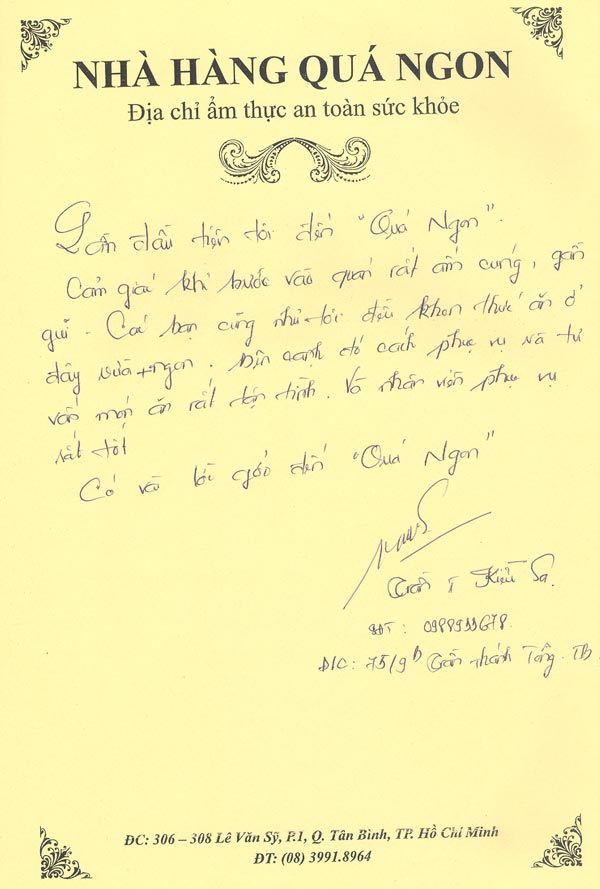 NHÀ HÀNG QUÁ NGON
Địa chỉ ẩm thực an toàn sức khỏe
Lần đầu tiên tôi đến "Quá Ngon".
Cảm giác khi bước vào quán rất ấm cúng, gần
gũi. Các bạn cũng như tôi đều khen thức ăn ở
đây vừa ngon. bên cạnh đó cách phục vụ và tư
vấn món ăn rất tận tình. Và nhân viên phục vụ
rất tốt
Có vài lời gởi đến "Quá Ngon"
Trần T Kiều Sa.
SĐT: 0988933678.
Đ/C: 75/9 Trần Thánh Tông. TB
ĐC: 306 – 308 Lê Văn Sỹ, P.1, Q. Tân Bình, TP. Hồ Chí Minh
ĐT: (08) 3991.8964